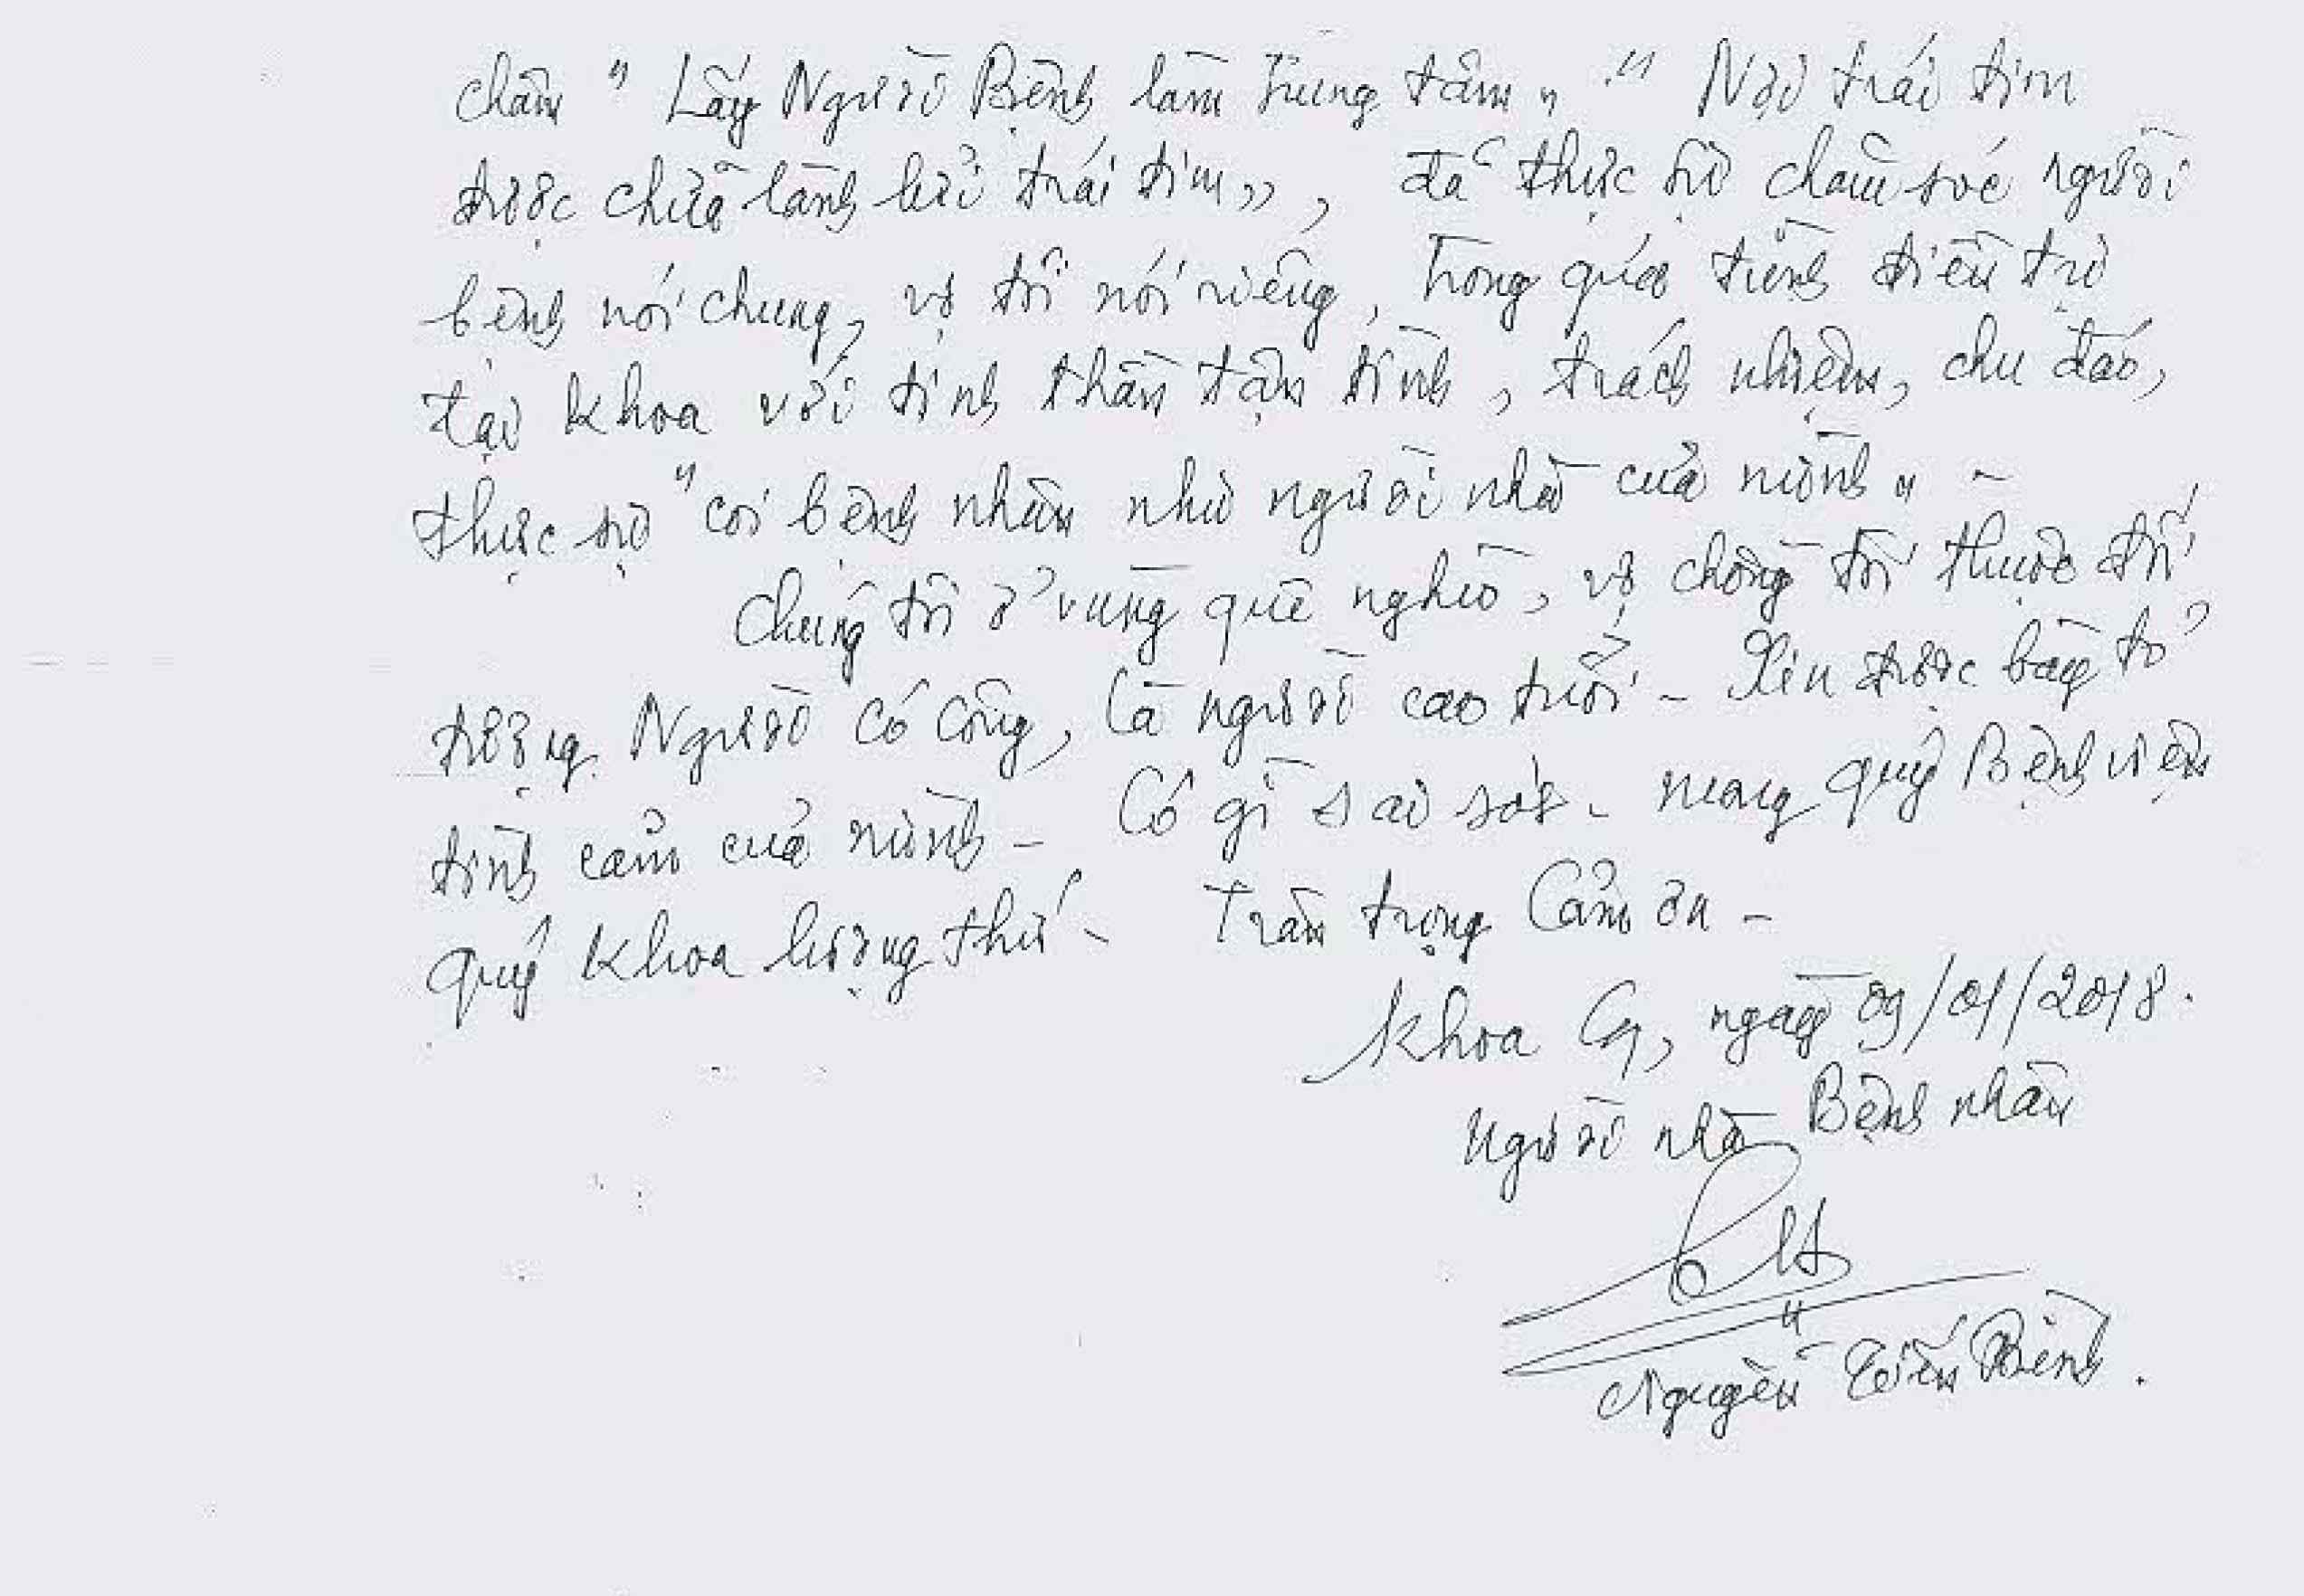 châm " Lấy Người Bệnh làm Trung tâm " " Nơi trái tim
được chữa lành bởi trái tim ", đã thực sự chăm sóc người
bệnh nói chung, vợ tôi nói riêng, Trong quá trình điều trị
tại khoa với tinh thần tận tình, trách nhiệm, chu đáo,
thực sự " coi bệnh nhân như người nhà của mình " -
Chúng tôi ở vùng quê nghèo, vợ chồng tôi thuộc đối
tượng Người có công, là người cao tuổi - Xin được bày tỏ
tình cảm của mình - Có gì sai sót - mong quý Bệnh viện
quý khoa lượng thứ - Trân trọng Cảm ơn -
Khoa C7, ngày 09/01/2018.
Người nhà Bệnh nhân
Nguyễn Tiến Bình.